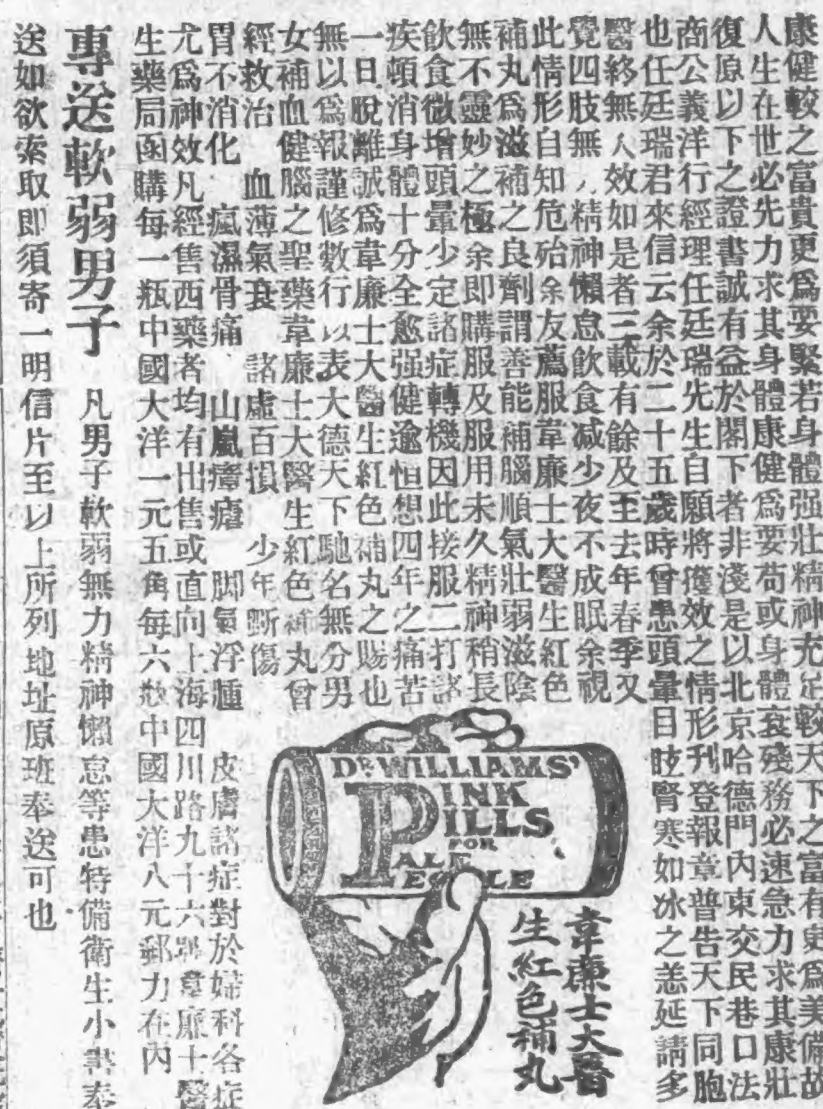 康健較之富貴更爲要緊若身體强壯精神充足較天下之富有更爲美備故
人生在世必先力求其身體康健爲要苟或身體衰殘務必速急力求其康壯
復原以下之證書誠有益於閣下者非淺是以北京哈德門內東交民巷口法
商公義洋行經理任廷瑞先生自願將獲效之情形刊登報章普告天下同胞
也任廷瑞君來信云余於二十五歲時曾患頭暈目眩腎寒如冰之恙延請多
醫終無人效如是者三載有餘及至去年春季又
覺四肢無 精神懶怠飲食减少夜不成眠余視
此情形自知危殆余友薦服韋廉士大醫生紅色
補丸爲滋補之良劑謂善能補腦順氣壯弱滋陰
無不靈妙之極余即購服及服用未久精神稍長
飲食微增頭暈少定諸症轉機因此接服二打諸
疾頓消身體十分全愈强健逾恒想四年之痛苦
一日脫離誠爲韋廉士大醫生紅色補丸之賜也
無以爲報謹修數行以表大德天下馳名無分男
女補血健腦之聖藥韋廉士大醫生紅色補丸曾
經救治 血薄氣衰 諸虛百損 少年斲傷
胃不消化 瘋濕骨痛 山嵐瘴瘧 脚氣浮腫 皮膚諸症對於婦科各症
尤爲神效凡經售西藥者均有出售或直向上海四川路九十六號韋廉士醫
生藥局函購每一瓶中國大洋一元五角每六 中國大洋八元郵力在內
專送軟弱男子 凡男子軟弱無力精神懶怠等患特備衛生小書奉
送如欲索取即須寄一明信片至以上所列地址原班奉送可也
DR WILLIAMS'
PINK
PILLS
FOR
PALE
PEOPLE
韋廉士大醫
生紅色補丸